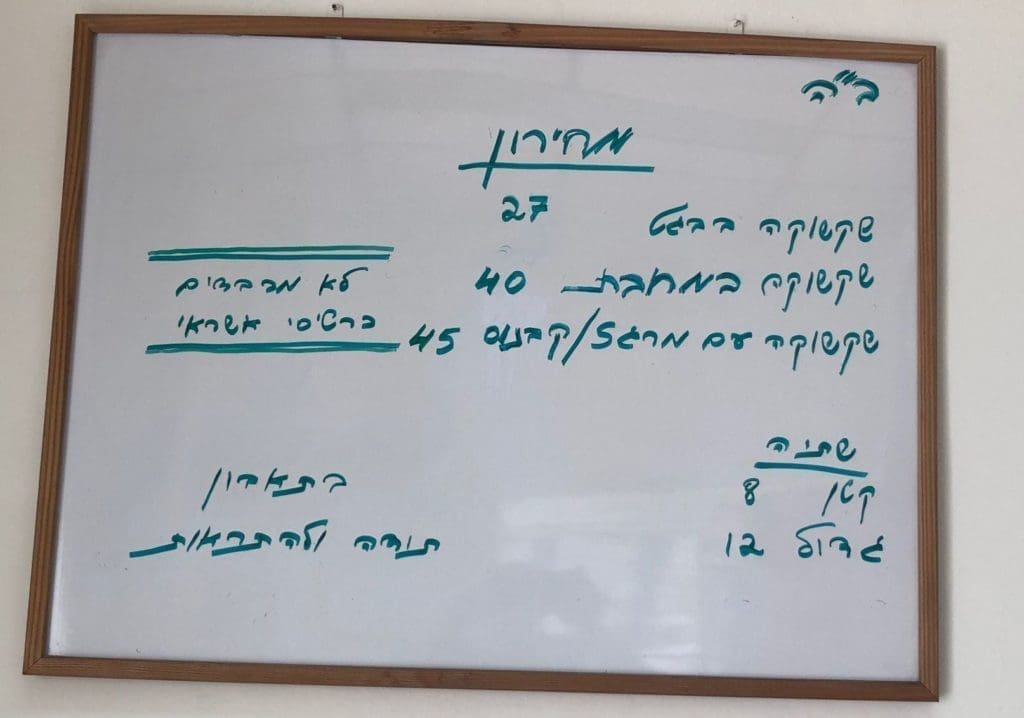 ב"ה
מחירון
שקשוקה בבגט 27
שקשוקה במחבת 40
שקשוקה עם מרגז/קבנוס 45
לא מכבדים
כרטיסי אשראי
שתיה
קטן 8
גדול 12
בתאבון
תודה ולהתראות